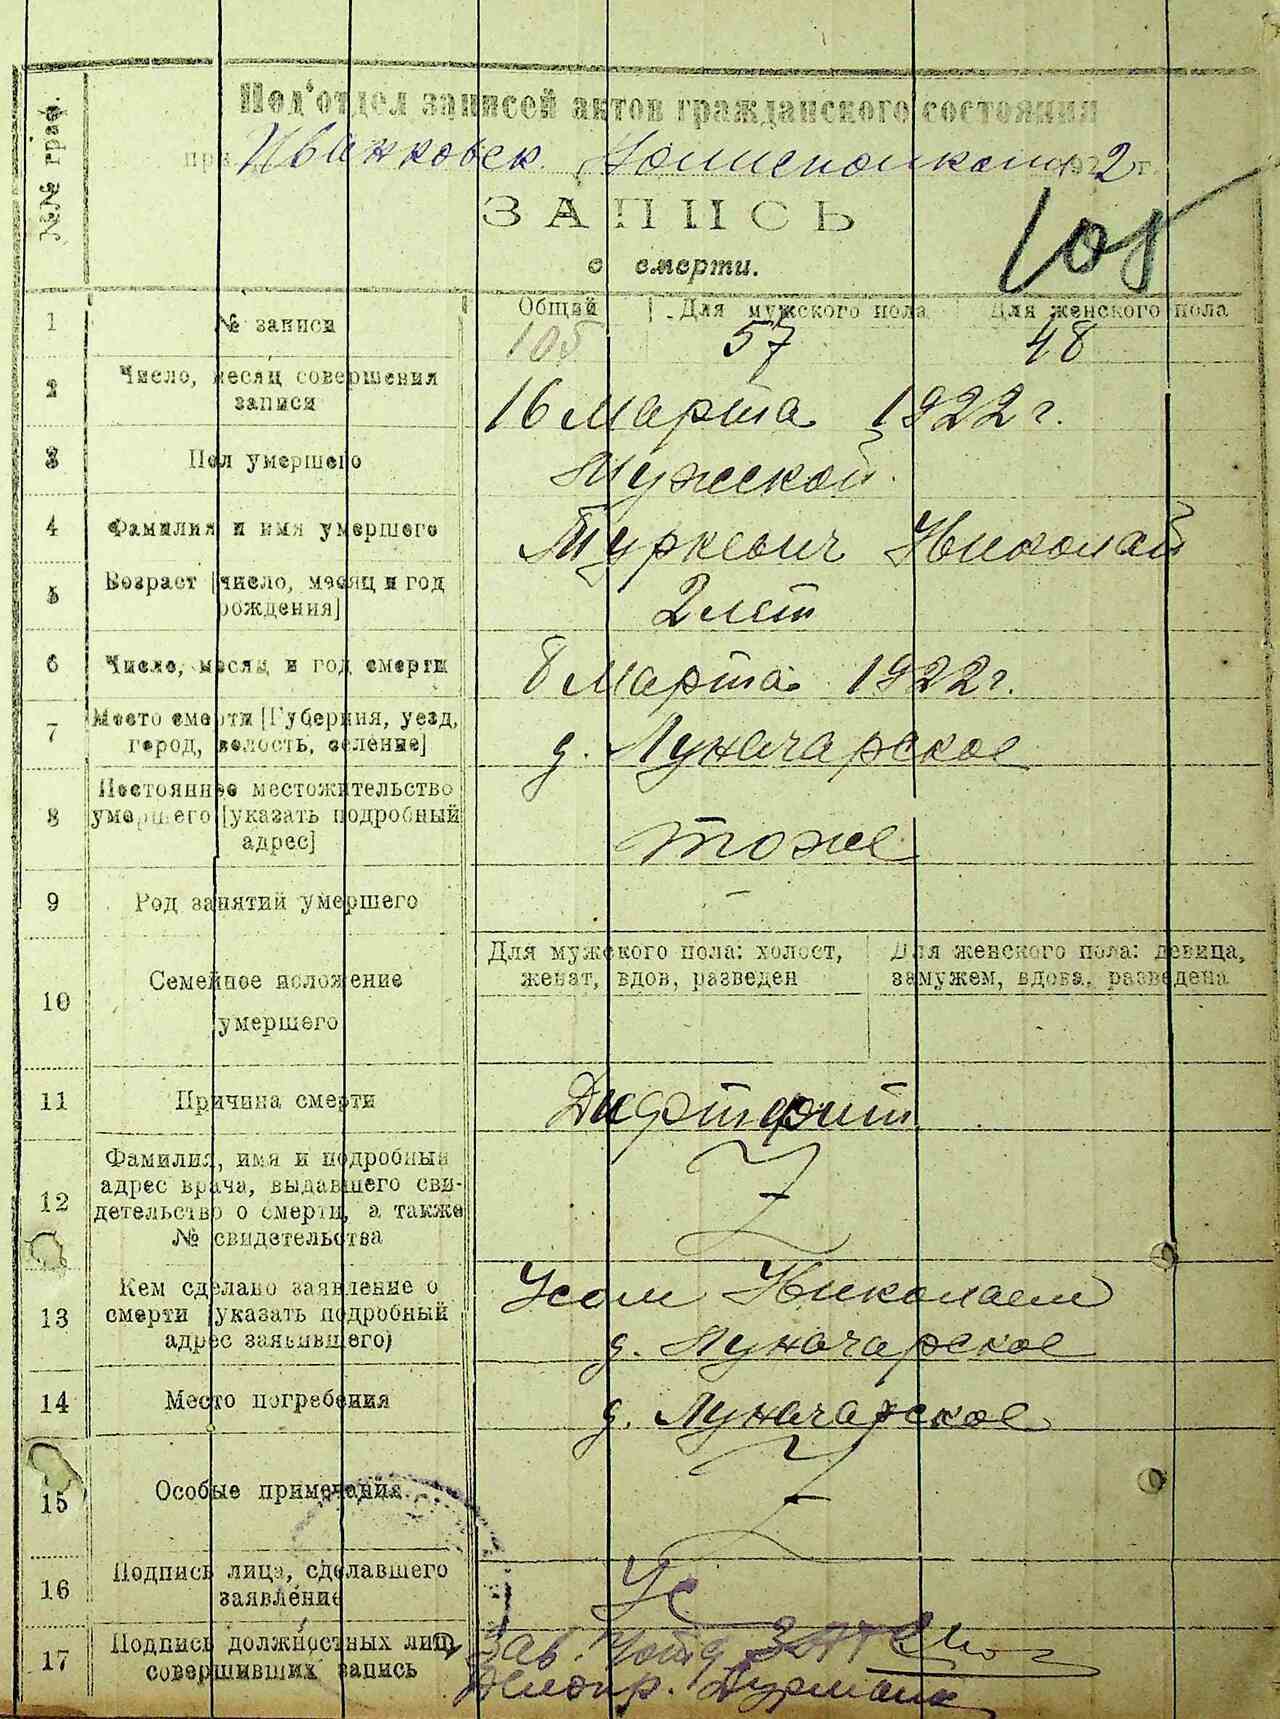 №№ граф.
Под'отдел записей актов гражданского состояния
при Иванковск. Волисполкоме 1922 г.
ЗАПИСЬ
о смерти.
105
Общий Для мужского пола Для женского пола
1 № записи 105 57 48
2 Число, месяц совершения
записи
16 Марта 1922 г.
3 Пол умершего Мужской
4 Фамилия и имя умершего Туркевич Николай
5 Возраст [число, месяц и год
рождения]
2 лет
6 Число, месяц и год смерти 8 Марта 1922 г.
7 Место смерти [Губерния, уезд,
город, волость, селение]
д. Луначарское
8 Постоянное местожительство
умершего [указать подробный
адрес]
тоже
9 Род занятий умершего –
10 Семейное положение
умершего
Для мужского пола: холост,
женат, вдов, разведен
Для женского пола: девица,
замужем, вдова, разведена
11 Причина смерти Дифтерит
12 Фамилия, имя и подробный
адрес врача, выдавшего сви-
детельство о смерти, а также
№ свидетельства
13 Кем сделано заявление о
смерти (указать подробный
адрес заявившего)
Усом Николаем
д. Луначарское
14 Место погребения д. Луначарское
15 Особые примечания.
16 Подпись лица, сделавшего
заявление
Ус
17 Подпись должностных лиц,
совершивших запись
Зав. ЗАГС
Делопр.